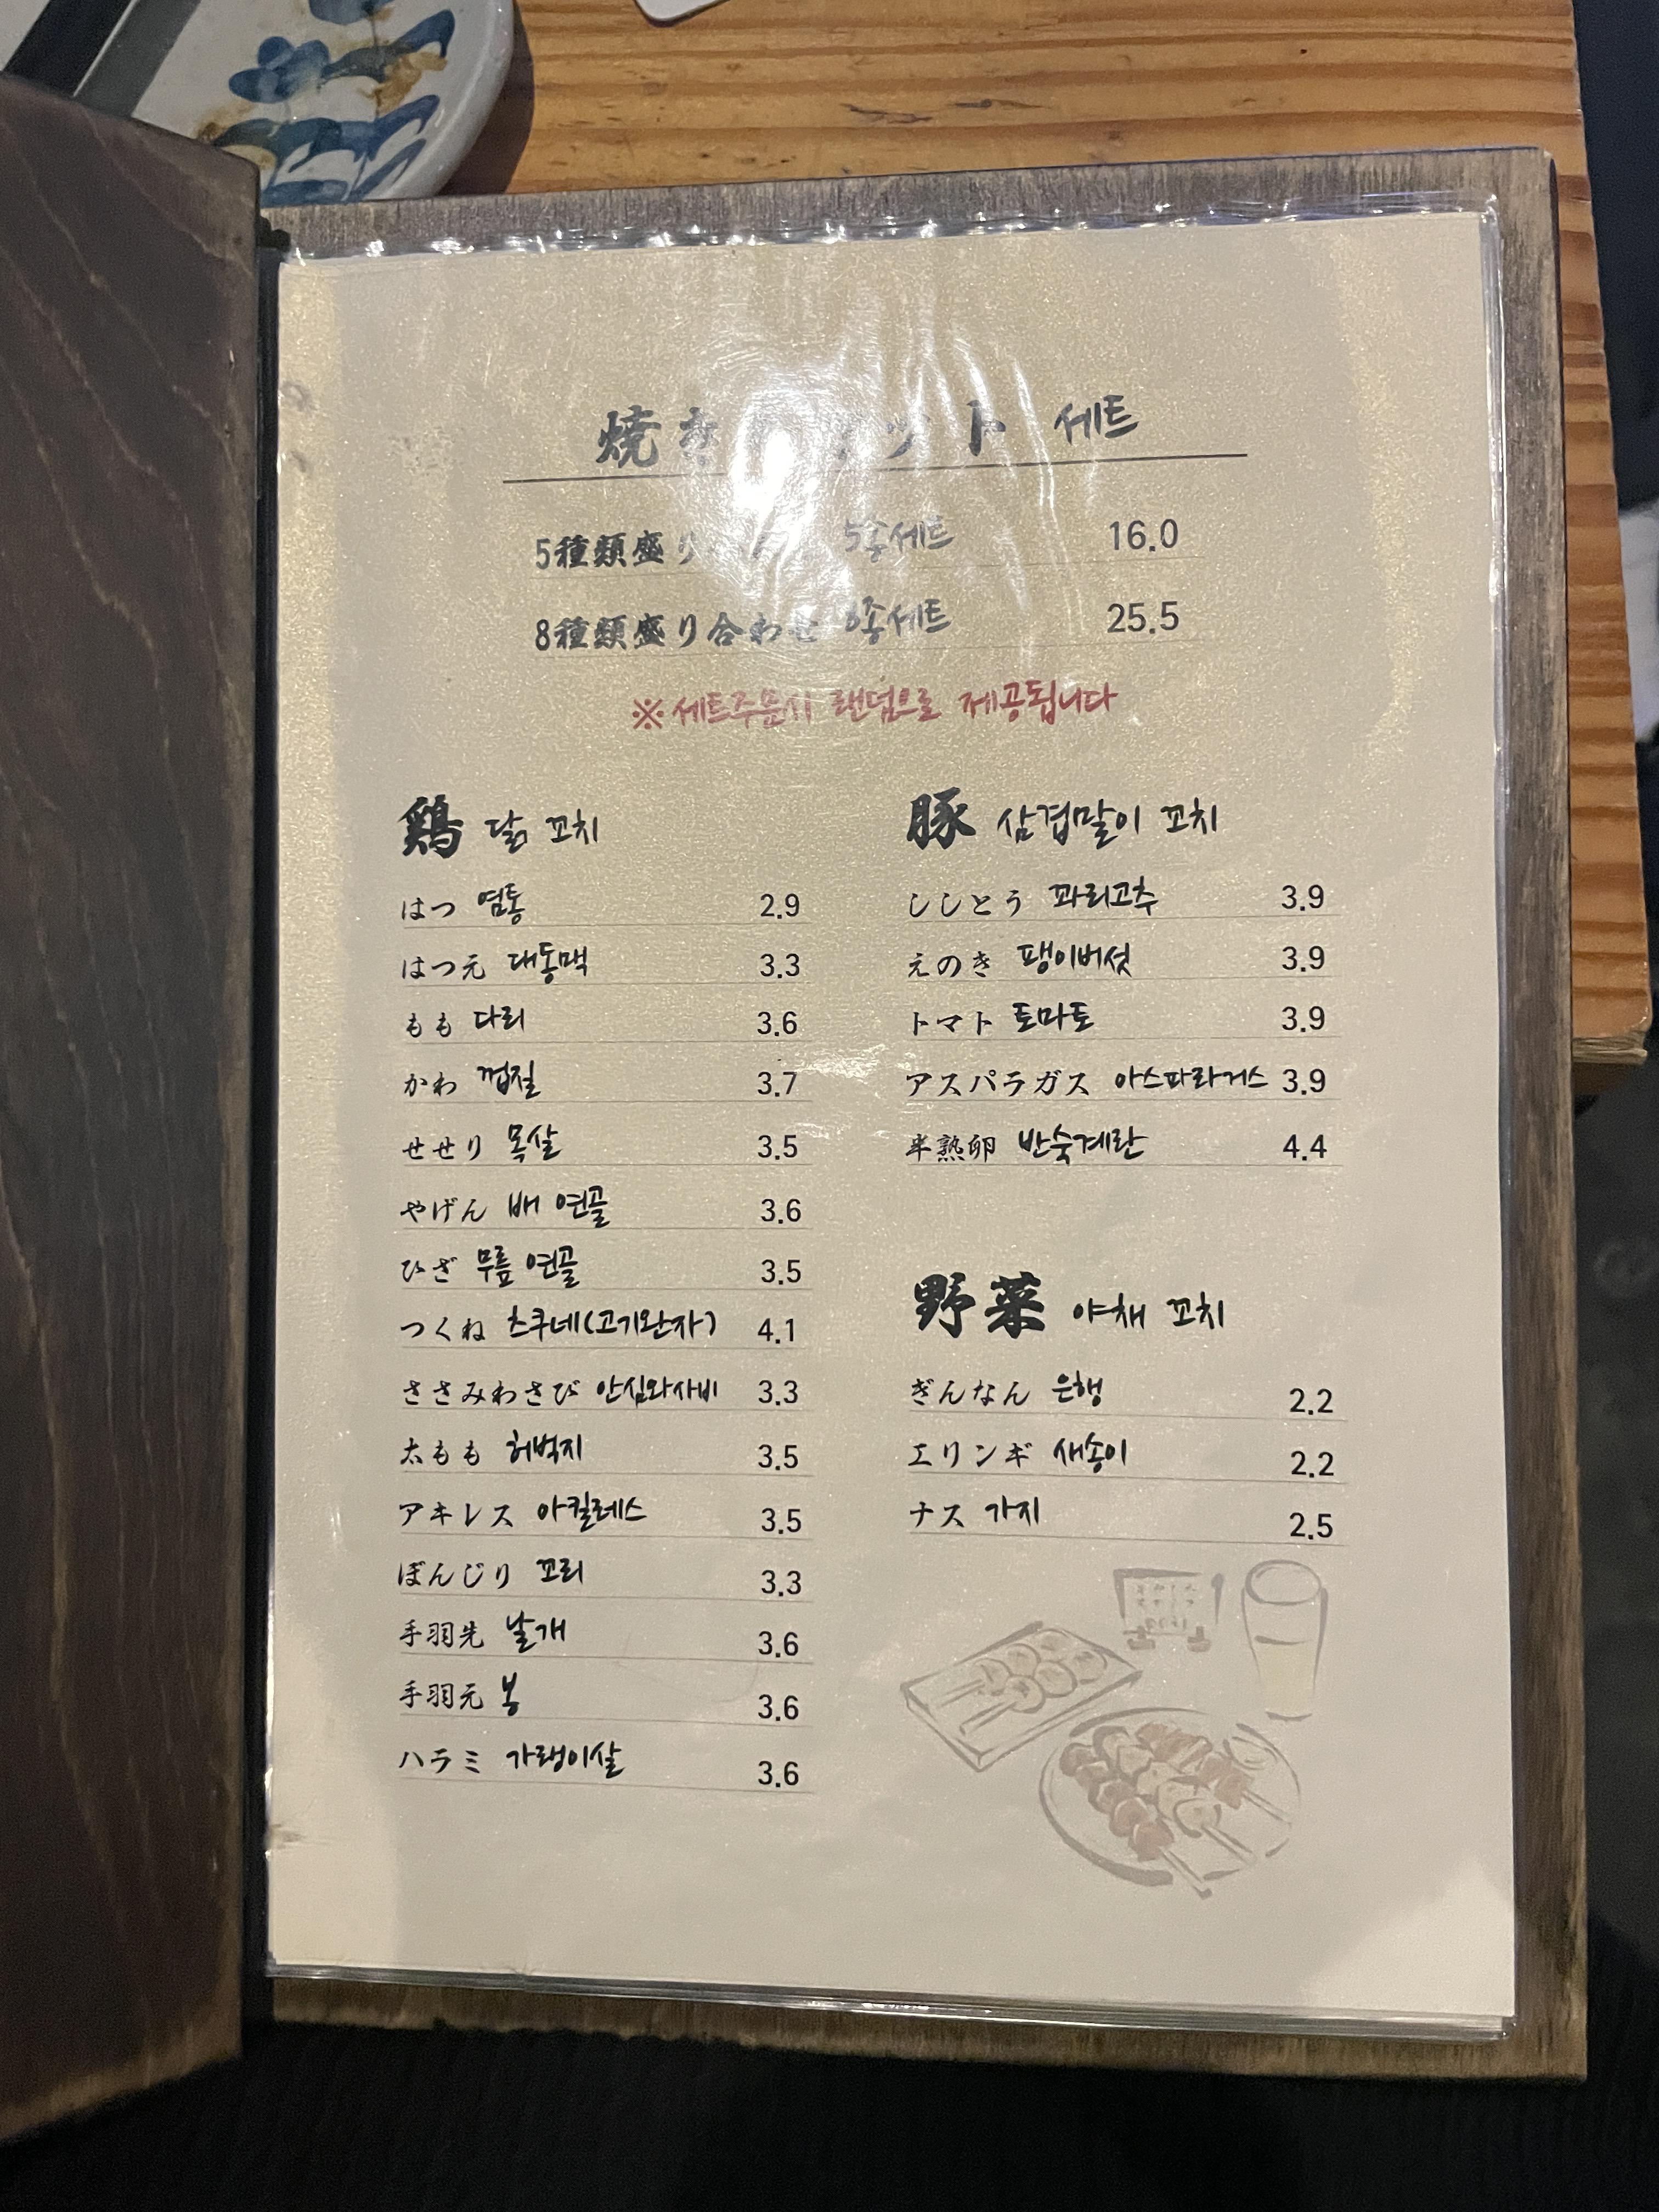 焼き ット 세트
5種類盛り 5종세트 16.0
8種類盛り合わせ 8종세트 25.5
※세트주문시 랜덤으로 제공됩니다
鶏 닭 꼬치
はつ 염통 2.9
はつ元 대동맥 3.3
もも 다리 3.6
かわ 껍질 3.7
せせり 목살 3.5
やげん 배 연골 3.6
ひざ 무릎 연골 3.5
つくね 츠쿠네(고기완자) 4.1
ささみわさび 안심와사비 3.3
太もも 허벅지 3.5
アキレス 아킬레스 3.5
ぼんじり 꼬리 3.3
手羽先 날개 3.6
手羽元 봉 3.6
ハラミ 가랭이살 3.6
豚 삼겹말이 꼬치
ししとう 꽈리고추 3.9
えのき 팽이버섯 3.9
トマト 토마토 3.9
アスパラガス 아스파라거스 3.9
半熟卵 반숙계란 4.4
野菜 야채 꼬치
ぎんなん 은행 2.2
エリンギ 새송이 2.2
ナス 가지 2.5